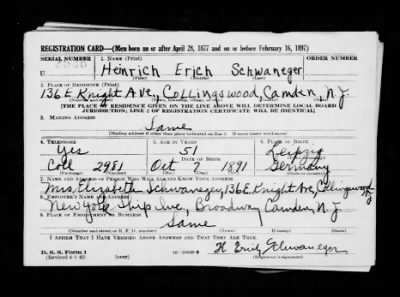 REGISTRATION CARD—(Men born on or after April 28, 1877 and on or before February 16, 1897)
SERIAL NUMBER 1. NAME (Print) ORDER NUMBER
U Heinrich Erich Schwaneger
(First) (Middle) (Last)
2. PLACE OF RESIDENCE (Print)
136 E Knight Ave, Collingswood, Camden, N J
[THE PLACE OF RESIDENCE GIVEN ON THE LINE ABOVE WILL DETERMINE LOCAL BOARD
JURISDICTION; LINE 2 OF REGISTRATION CERTIFICATE WILL BE IDENTICAL]
3. MAILING ADDRESS
Same
[Mailing address if other than place indicated on line 2. If same insert word same]
4. TELEPHONE 5. AGE IN YEARS 6. PLACE OF BIRTH
Yes 51 Leipzig
DATE OF BIRTH
Coll 2951 Oct 7 1891 Germany
7. NAME AND ADDRESS OF PERSON WHO WILL ALWAYS KNOW YOUR ADDRESS
Mrs. Elizabeth Schwaneger, 136 E Knight Ave, Collingswood NJ
8. EMPLOYER'S NAME AND ADDRESS
New York Ship Inc, Broadway Camden, N. J.
9. PLACE OF EMPLOYMENT OR BUSINESS
Same
I AFFIRM THAT I HAVE VERIFIED ABOVE ANSWERS AND THAT THEY ARE TRUE.
H. Erich Schwaneger
D. S. S. Form 1
(Registrant's signature)